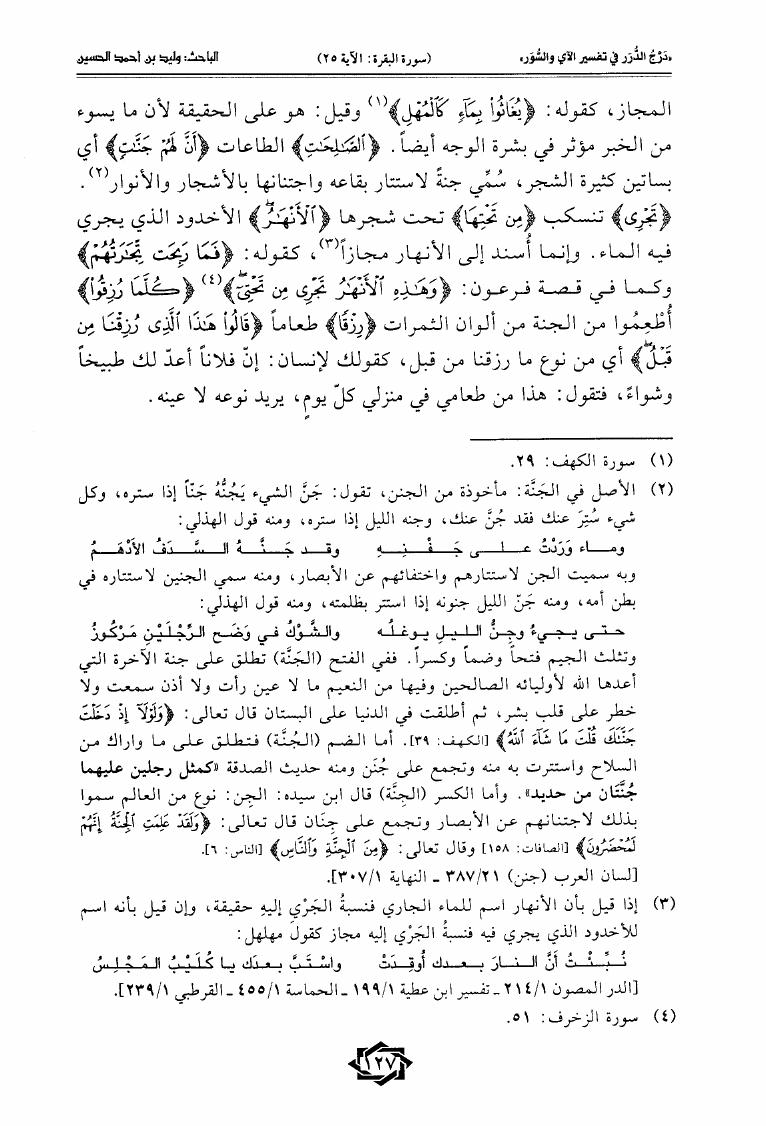 «دَرْجُ الدُّرَر في تفسير الآي والسُّوَر» (سورة البقرة: الآية ٢٥) الباحث: وليد بن أحمد الحسين
المجاز، كقوله: ﴿يُغَاثُوا۟ بِمَآءٍ كَٱلْمُهْلِ﴾(١) وقيل: هو على الحقيقة لأن ما يسوء
من الخبر مؤثر في بشرة الوجه أيضاً. ﴿ٱلصَّٰلِحَٰتِ﴾ الطاعات ﴿أَنَّ لَهُمْ جَنَّٰتٍ﴾ أي
بساتين كثيرة الشجر، سُمِّي جنةً لاستتار بقاعه واجتنانها بالأشجار والأنوار(٢).
﴿تَجْرِى﴾ تنسكب ﴿مِن تَحْتِهَا﴾ تحت شجرها ﴿ٱلْأَنْهَٰرُ﴾ الأخدود الذي يجري
فيه الماء. وإنما أُسند إلى الأنهار مجازاً(٣)، كقوله: ﴿فَمَا رَبِحَت تِّجَٰرَتُهُمْ﴾
وكما في قصة فرعون: ﴿وَهَٰذِهِ ٱلْأَنْهَٰرُ تَجْرِى مِن تَحْتِىٓ﴾(٤) ﴿كُلَّمَا رُزِقُوا۟﴾
أُطْعِمُوا من الجنة من ألوان الثمرات ﴿رِزْقًا﴾ طعاماً ﴿قَالُوا۟ هَٰذَا ٱلَّذِى رُزِقْنَا مِن
قَبْلُ﴾ أي من نوع ما رزقنا من قبل، كقولك لإنسان: إنّ فلاناً أعدّ لك طبيخاً
وشواءً، فتقول: هذا من طعامي في منزلي كلّ يومٍ، يريد نوعه لا عينه.
(١) سورة الكهف: ٢٩.
(٢) الأصل في الجَنَّة: مأخوذة من الجنن، تقول: جَنَّ الشيء يَجُنُّهُ جَنّاً إذا ستره، وكل
شيء سُتِرَ عنك فقد جُنَّ عنك، وجنه الليل إذا ستره، ومنه قول الهذلي:
ومـاء وَرَدْتُ عـلـى جَـفْـنِـهِ وقـد جَـنَّـهُ الـسَّـدَفُ الأدْهَـمُ
وبه سميت الجن لاستتارهم واختفائهم عن الأبصار، ومنه سمي الجنين لاستتاره في
بطن أمه، ومنه جَنّ الليل جنونه إذا استتر بظلمته، ومنه قول الهذلي:
حـتـى يـجـيءُ وجـنُّ الـلـيـل يـوغـلُـه والشَّوْكُ في وَضَحِ الرِّجْلَيْنِ مَرْكُوزُ
وتثلث الجيم فتحاً وضماً وكسراً. ففي الفتح (الجَنَّة) تطلق على جنة الآخرة التي
أعدها الله لأوليائه الصالحين وفيها من النعيم ما لا عين رأت ولا أذن سمعت ولا
خطر على قلب بشر، ثم أطلقت في الدنيا على البستان قال تعالى: ﴿وَلَوْلَآ إِذْ دَخَلْتَ
جَنَّتَكَ قُلْتَ مَا شَآءَ ٱللَّهُ﴾ [الكهف: ٣٩]. أما الضم (الجُنَّة) فتطلق على ما واراك من
السلاح واستترت به منه وتجمع على جُنَن ومنه حديث الصدقة «كمثل رجلين عليهما
جُنَّتَان من حديد». وأما الكسر (الجِنَّة) قال ابن سيده: الجن: نوع من العالم سموا
بذلك لاجتنانهم عن الأبصار وتجمع على جِنَان قال تعالى: ﴿وَلَقَدْ عَلِمَتِ ٱلْجِنَّةُ إِنَّهُمْ
لَمُحْضَرُونَ﴾ [الصافات: ١٥٨] وقال تعالى: ﴿مِنَ ٱلْجِنَّةِ وَٱلنَّاسِ﴾ [الناس: ٦].
[لسان العرب (جنن) ٣٨٧/٢١ ـ النهاية ٣٠٧/١].
(٣) إذا قيل بأن الأنهار اسم للماء الجاري فنسبةُ الجَرْي إليهِ حقيقة، وإن قيل بأنه اسم
للأخدود الذي يجري فيه فنسبةُ الجَرْي إليه مجاز كقول مهلهل:
نُـبِّـئْـتُ أنَّ الـنـارَ بـعـدك أُوقِـدَتْ واسْتَبَّ بـعـدَك يـا كُلَيْبُ الـمَـجْـلِـسُ
[الدر المصون ٢١٤/١ ـ تفسير ابن عطية ١٩٩/١ ـ الحماسة ٤٥٥/١ ـ القرطبي ٢٣٩/١].
(٤) سورة الزخرف: ٥١.
١٢٧